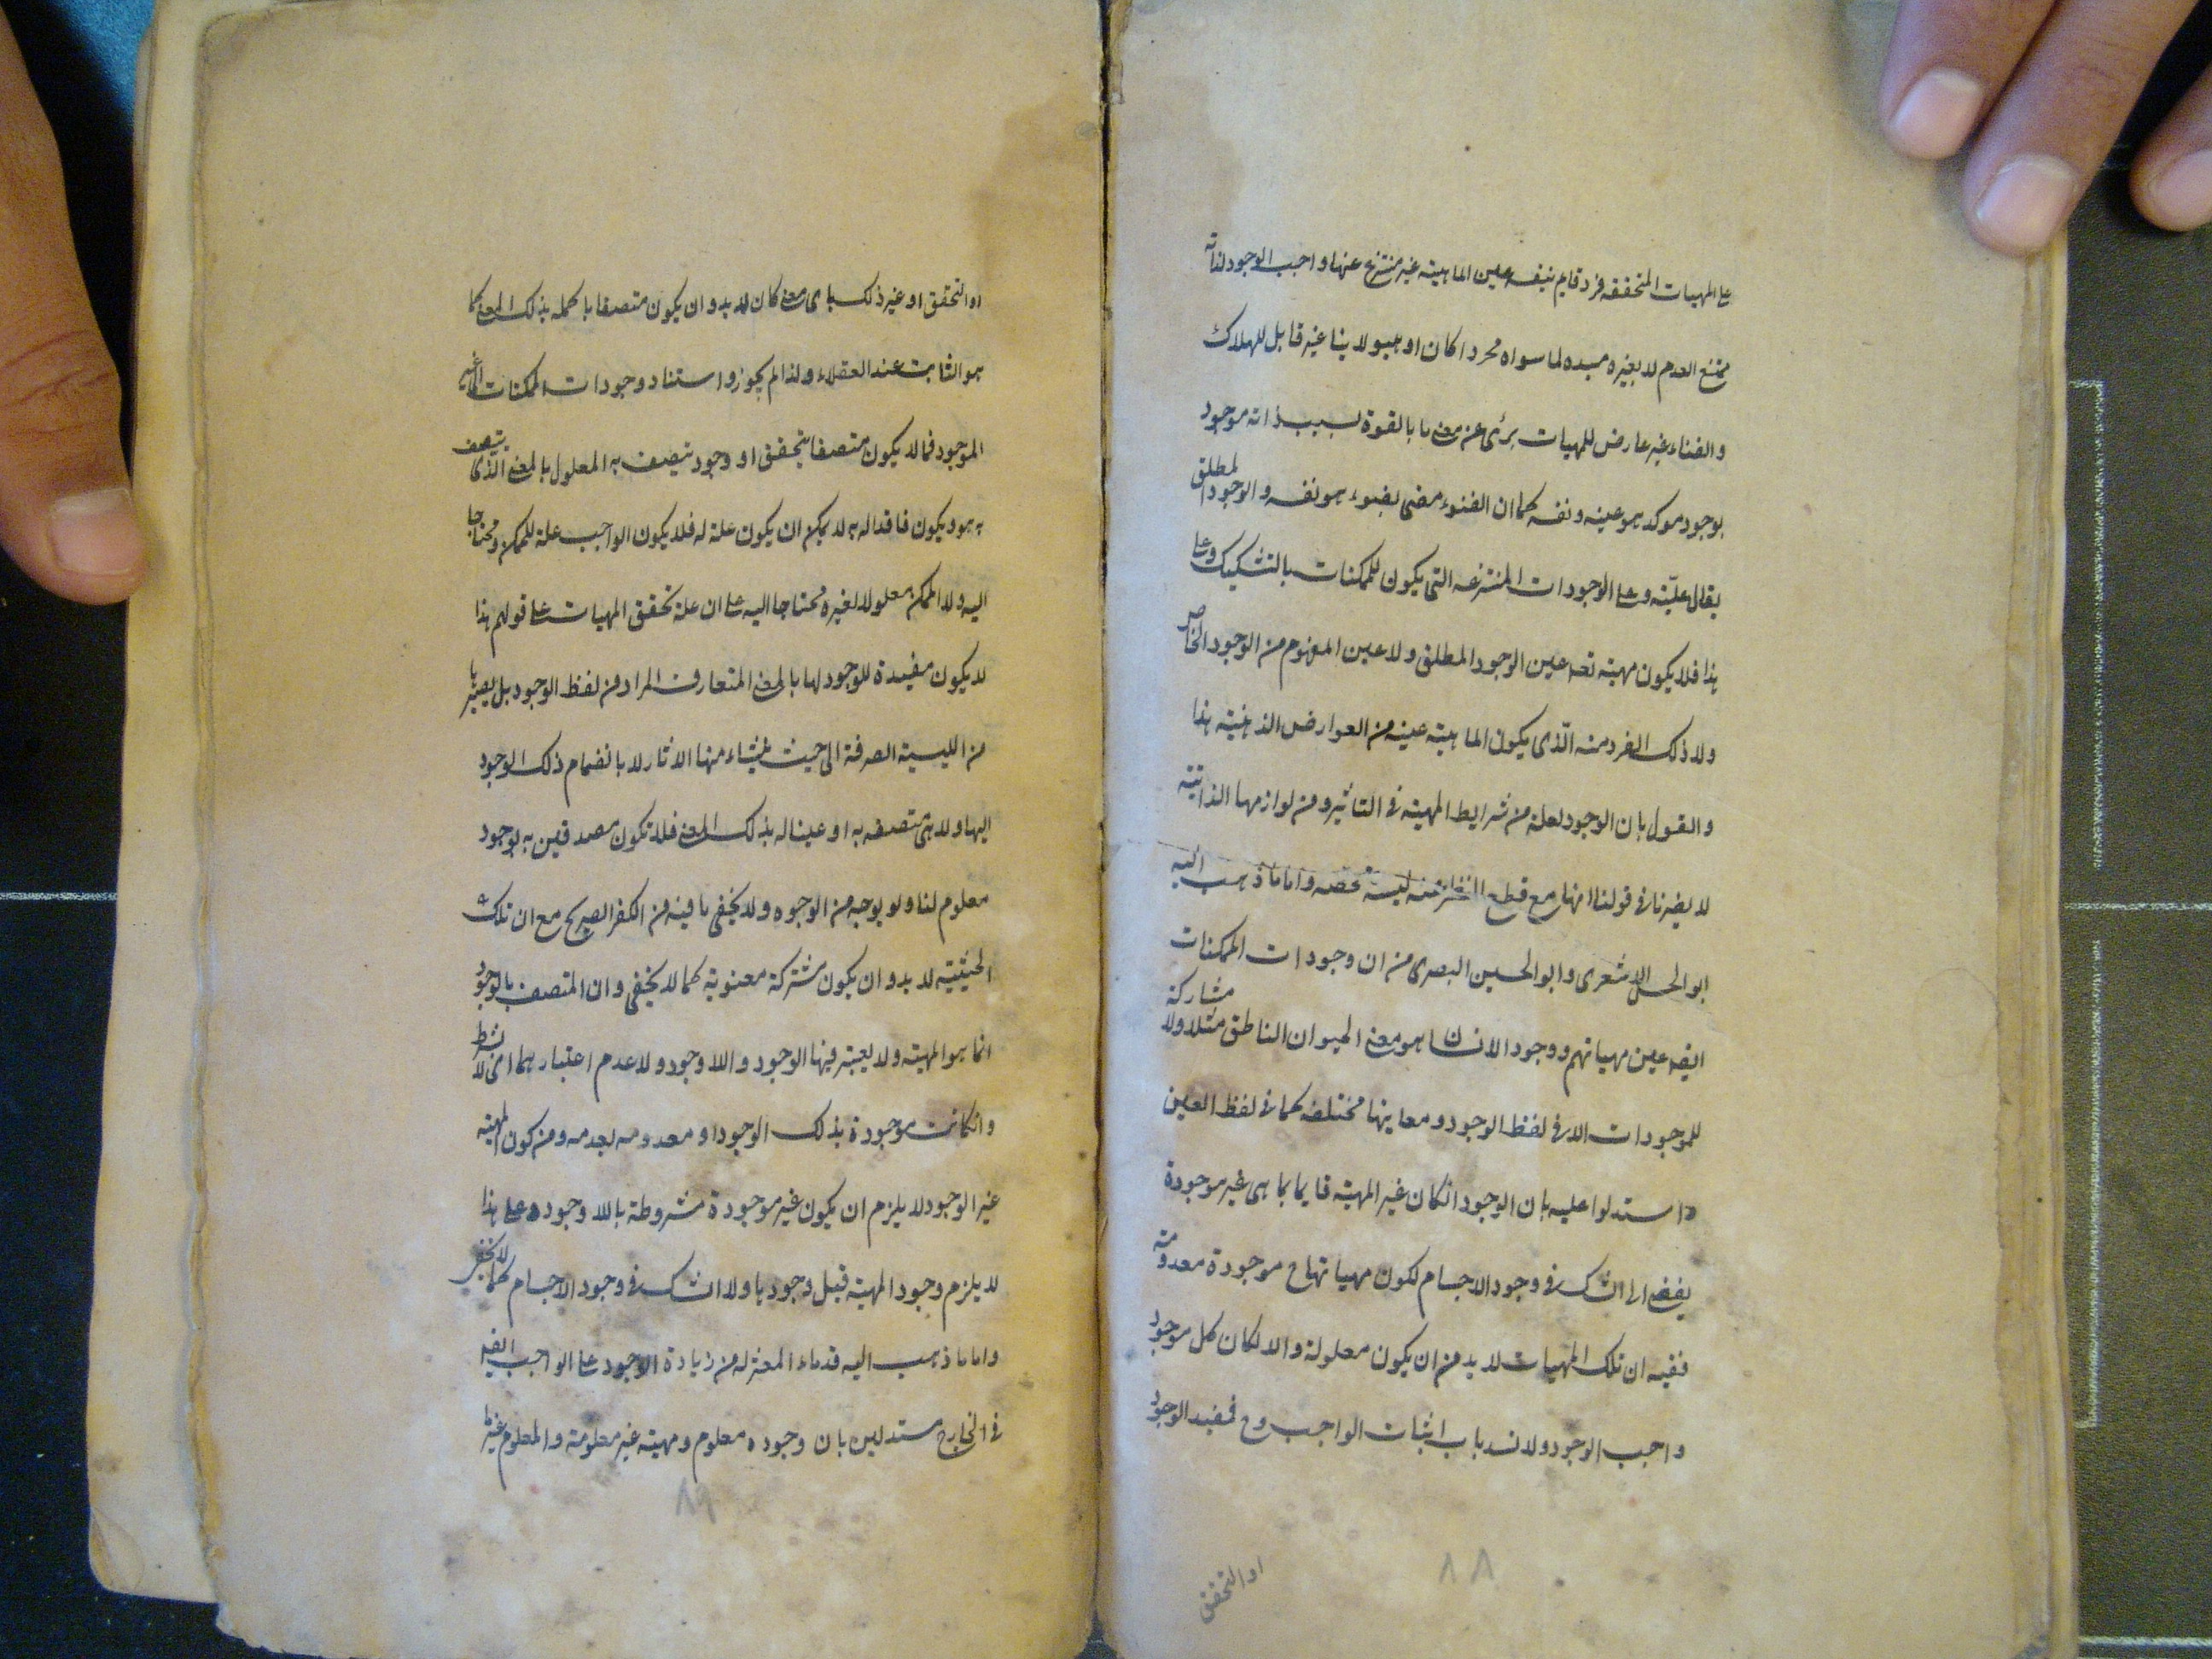 على المهيات المتحققه فرد قايم بنفسه عين الماهية غير منتزع عنها واجب الوجود لذاته
ممتنع العدم لا بغيره مبدء لما سواه مجردا كان او هيولانيا غير قابل للهلاك
والفناء غير عارض للمهيات برئ عن معنى ما بالقوة لسبب ذاته موجود
بوجود موكد هو عينه ونفسه كما ان الضوء مضى بضوء هو نفسه والوجود المطلق
يقال عليه وعلى الوجودات المنتزعه التى يكون للممكنات بالتشكيك وعلى
هذا فلا يكون مهيته تعه عين الوجود المطلق ولا عين المفهوم من الوجود الخاص
ولا ذلك الفرد منه الذى يكون الماهية عينه من العوارض الذهنيته هذا
والقول بان الوجود لعله من شرايط المهية فى التاثير ومن لوازمها الذاتيته
لا يضرنا فى قولنا انها مع قطع النظر عنه ليسته محضه واما ما ذهب اليه
ابو الحسن الاشعرى وابو الحسين البصرى من ان وجودات الممكنات
ايضه عين مهياتهم ووجود الانسان هو معنى الحيوان الناطق مثلا ولا مشاركة
للموجودات الا فى لفظ الوجود ومعاينها مختلفه كما فى لفظ العين
واستدلوا عليه بان الوجود ان كان غير المهية قايما بما هى غير موجودة
يفضى الى الشك فى وجود الاجسام لكون مهياتها ح موجودة معدومة
ففيه ان تلك المهيات لا بد من ان يكون معلولة والا لكان كل موجود
واجب الوجود ولانسد باب اثبات الواجب وح فمفيد الوجود
او التحقق
٨٨
او التحقق او غير ذلك باى معنى كان لا بد وان يكون متصفا با كمله بذلك المعنى كما
هو الثابت عند العقلاء ولذا لم يجوزوا استناد وجودات الممكنات الى غير
الموجود فما لا يكون متصفا بتحقق او وجود تتصف به المعلول بالمعنى الذى يتصف
به هو ويكون فاقدا له به لا يمكن ان يكون علة له فلا يكون الواجب علة للممكن ومحتاجا
اليه ولا الممكن معلولا لغيره محتاجا اليه على ان علة تحقق المهيات على قولهم هذا
لا يكون مفيدة للوجود لها بالمعنى المتعارف المراد من لفظ الوجود بل يصيرها
من الليسية الصرفة الى حيث ينشاء منها الاثار لا بانضمام ذلك الوجود
اليها ولا هى متصفه به او عينا له بذلك المعنى فلا تكون مصدقين به بوجود
معلوم لنا ولو بوجه من الوجوه ولا يخفى ما فيه من الكفر الصريح مع ان تلك
الحيثيته لا بد وان يكون مشتركة معنوية كما لا يخفى وان المتصف بالوجود
انما هو المهيته ولا يعتبر فيها الوجود واللا وجود ولا عدم اعتبارهما اى لا بشرط
وانكانت موجودة بذلك الوجود او معدومه بعدمه ومن كون المهيته
غير الوجود لا يلزم ان يكون غير موجودة مشروطة باللا وجود وعلى هذا
لا يلزم وجود المهية قبل وجودها ولا الشك فى وجود الاجسام كما لا يخفى
واما ما ذهب اليه قدماء المعتزله من زيادة الوجود على الواجب ايضه
فى الخارج مستدلين بان وجوده معلوم ومهيته غير معلومة والمعلوم غير ما
٨٩